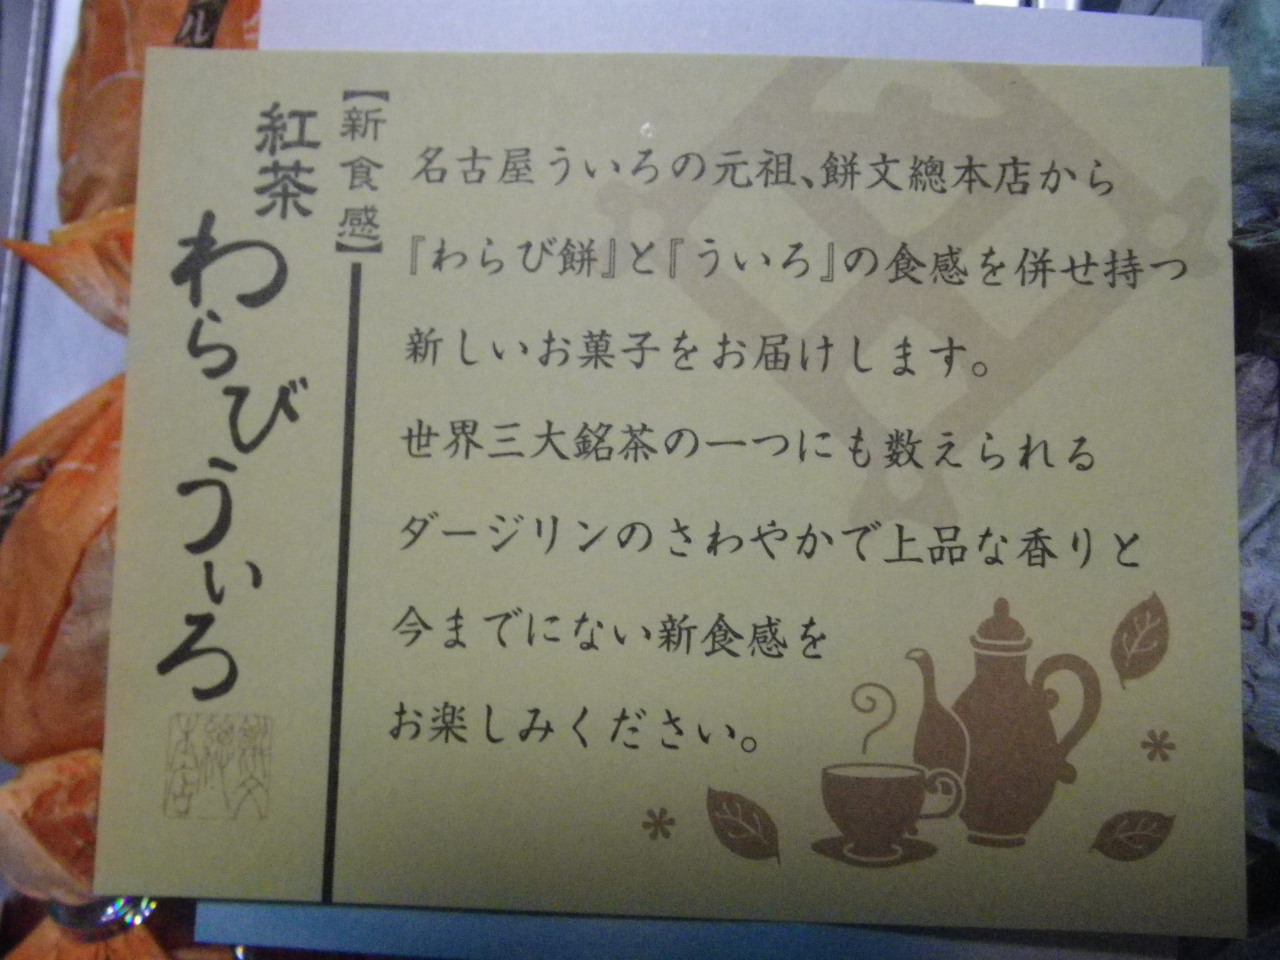 【新食感】
紅茶
わらびういろ
名古屋ういろの元祖、餅文總本店から
『わらび餅』と『ういろ』の食感を併せ持つ
新しいお菓子をお届けします。
世界三大銘茶の一つにも数えられる
ダージリンのさわやかで上品な香りと
今までにない新食感を
お楽しみください。
餅文
總
本店